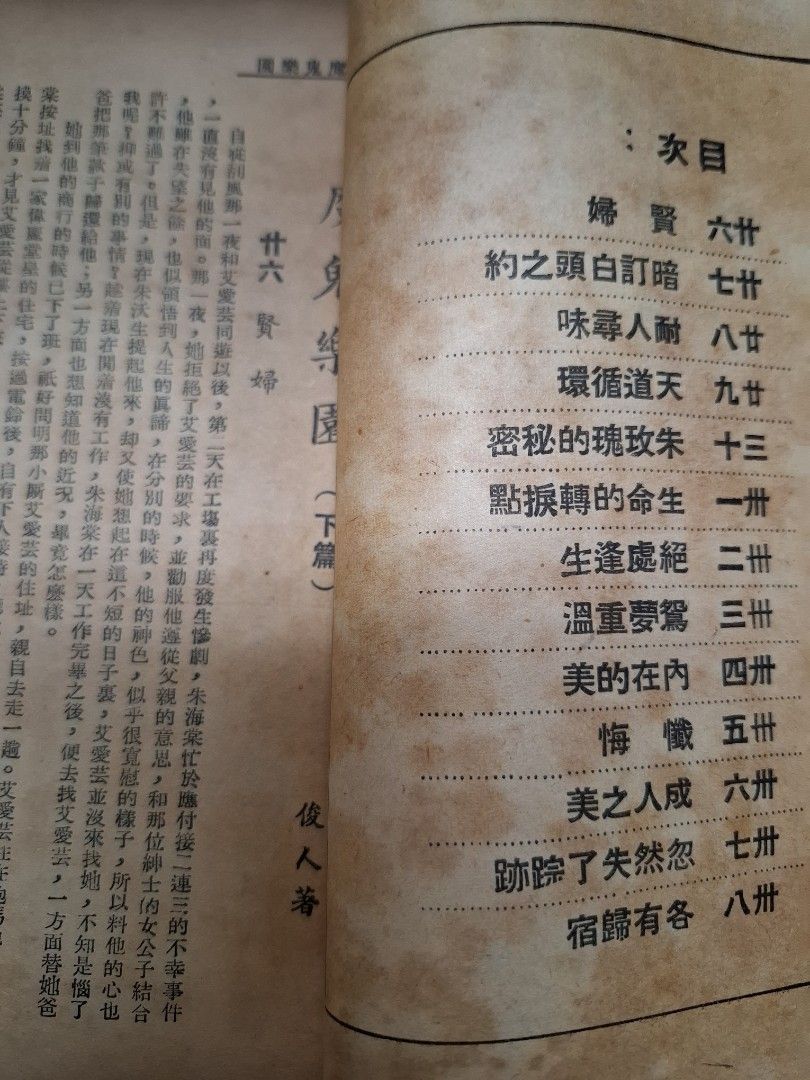 目次：
廿六 賢婦
廿七 暗訂白頭之約
廿八 耐人尋味
廿九 天道循環
三十 朱玫瑰的秘密
卅一 生命的轉捩點
卅二 絕處逢生
卅三 鴛夢重溫
卅四 內在的美
卅五 懺悔
卅六 成人之美
卅七 忽然失了踪跡
卅八 各有歸宿
魔鬼樂園
魔鬼樂園（下篇）
俊人著
廿六 賢婦
自從刮風那一夜和艾愛芸同遊以後，第二天在工塲裏再度發生慘劇，朱海棠忙於應付接二連三的不幸事件
，一直沒有見他的面。那一夜，她拒絕了艾愛芸的要求，並勸服他遵從父親的意思，和那位紳士的女公子結合
，他雖在失望之餘，也似領悟到人生的眞諦，在分別的時候，他的神色，似乎很寬慰的樣子，所以料他的心也
許不難過了。但是，現在朱汰生提起他來，却又使她想起在這不短的日子裏，艾愛芸並沒來找她，不知是惱了
我呢？抑或有別的事情？趁着現在閒着沒有工作，朱海棠在一天工作完畢之後，便去找艾愛芸，一方面替她爸
爸把那筆款子歸還給他；另一方面也想知道他的近況，畢竟怎麽樣。
她到他的商行的時候已下了班，祇好問明那小厮艾愛芸的住址，親自去走一趟。
棠按址找着一家像厦堂皇的住宅，按過電鈴後，自有下人接待
摸十分鐘，才見艾愛芸從